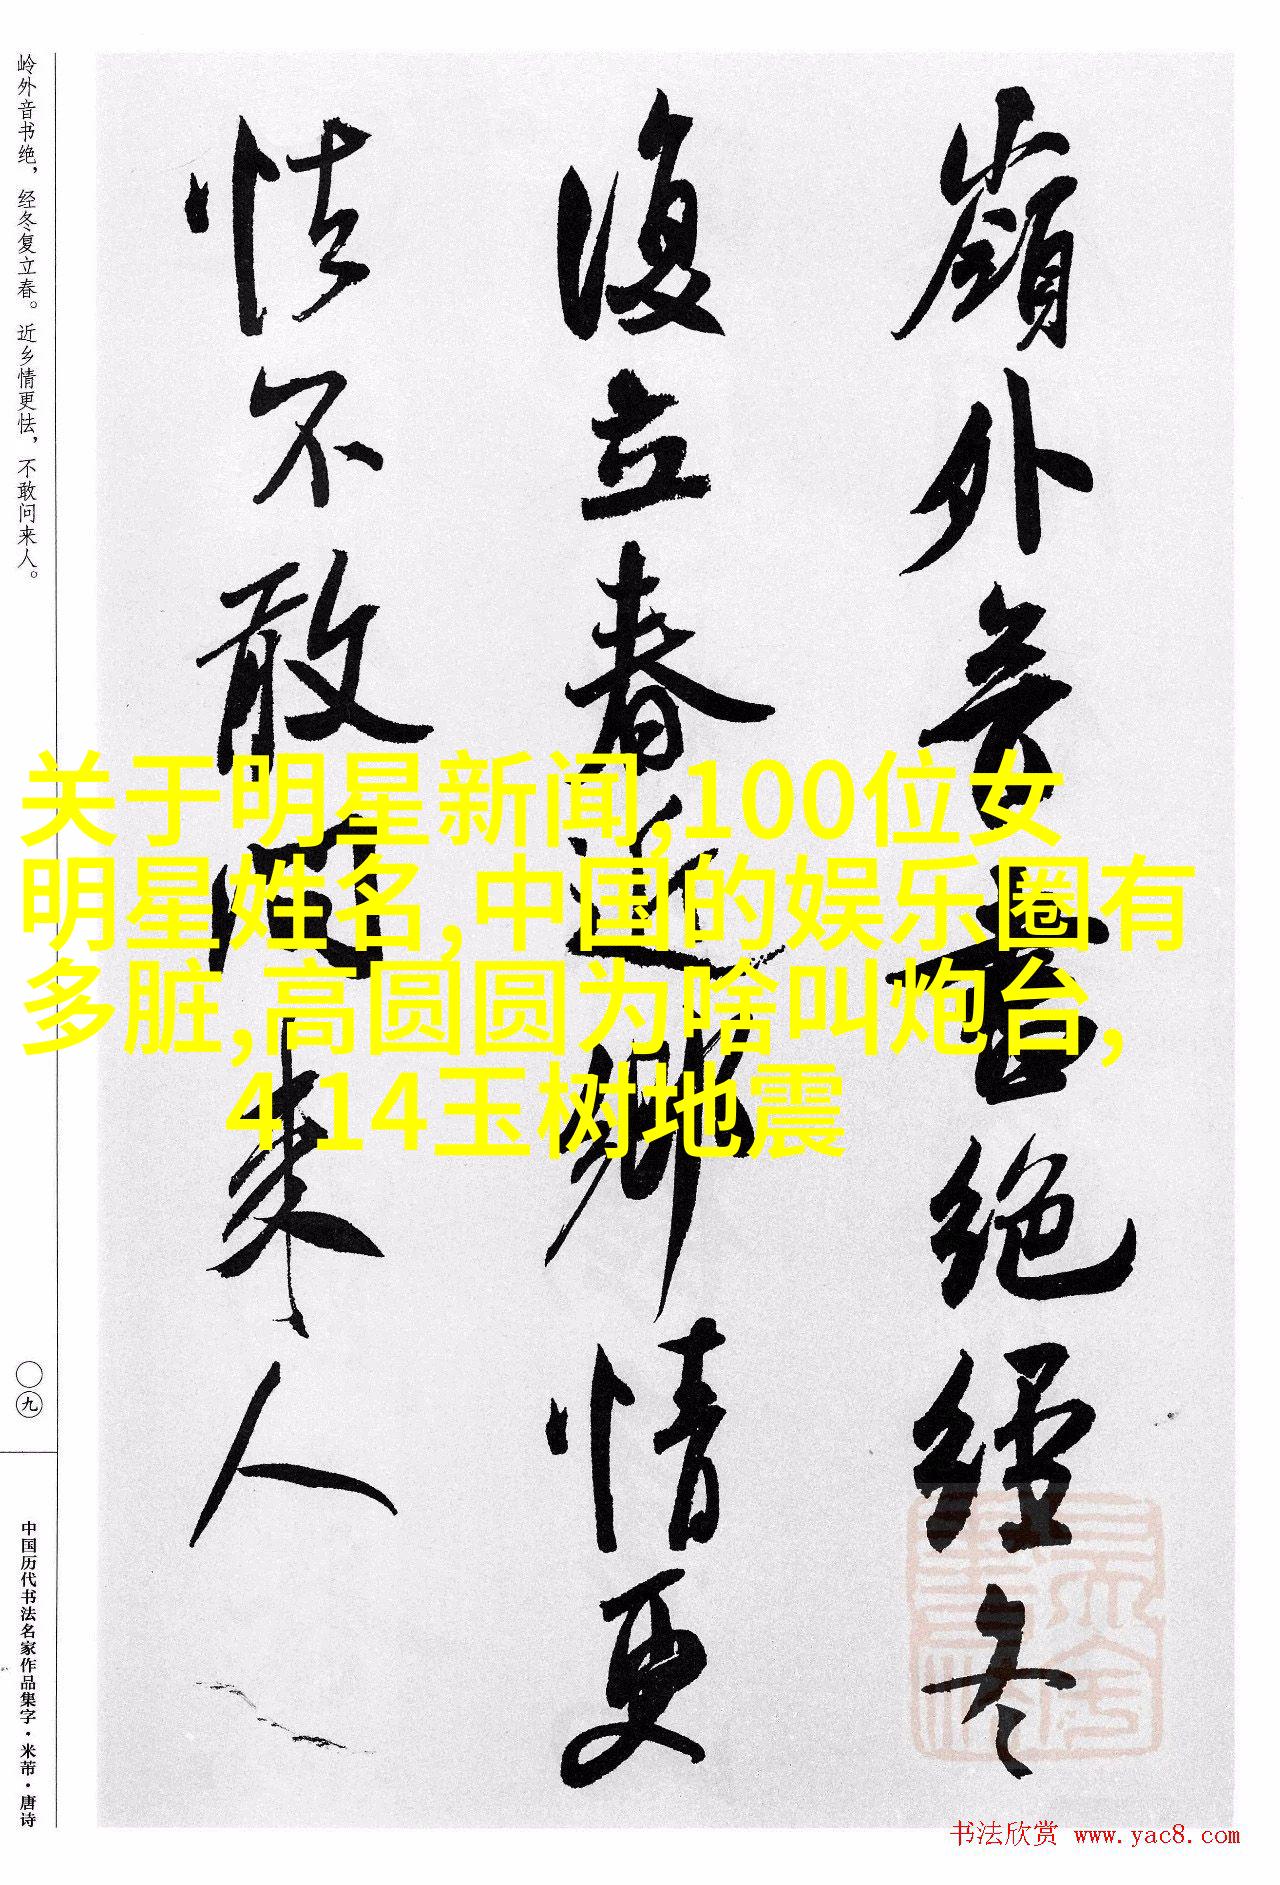 嶺外音書絕經冬
復立春近鄉情更
怯不敢問來人
岭外音书绝，经冬复立春。近乡情更怯，不敢问来人。
〇九
中国历代书法名家作品集字·米芾·唐诗
关于明星新闻,100位女
明星姓名,中国的娱乐圈有
多脏,高圆圆为啥叫炮台,
4.14玉树地震
书法欣赏 www.yac8.com